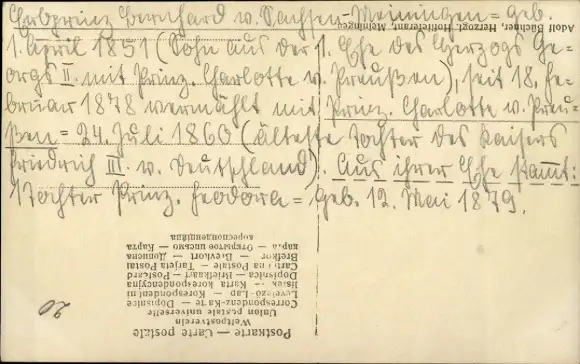 Erbprinz Bernhard v. Sachsen-Meiningen = Geb.
1. April 1851 (Sohn aus der 1. Ehe des Herzogs Ge-
orgs II. mit Prinz. Charlotte v. Preußen), seit 18. Fe-
bruar 1878 vermählt mit Prinz. Charlotte v. Preu-
ßen = 24. Juli 1860 (älteste Tochter des Kaisers
Friedrich III. v. Deutschland). Aus ihrer Ehe stammt:
1 Tochter Prinz. Feodora = Geb. 12. Mai 1879.
Adolf Büchner, Herzogl. Hoflieferant, Meiningen
Postkarte — Carte postale
Weltpostverein
Union postale universelle
Correspondenz-Karte — Dopisnice
Levelező-Lap — Korespondeni
listek — Karta korespondencyjna
Dopisnica — Briefkaart — Postcard
Cartolina Postale — Tarjeta Postal
Brefkort — Brevkort — Дописна
карта — Открытое письмо — Карта
корреспонденційна
20